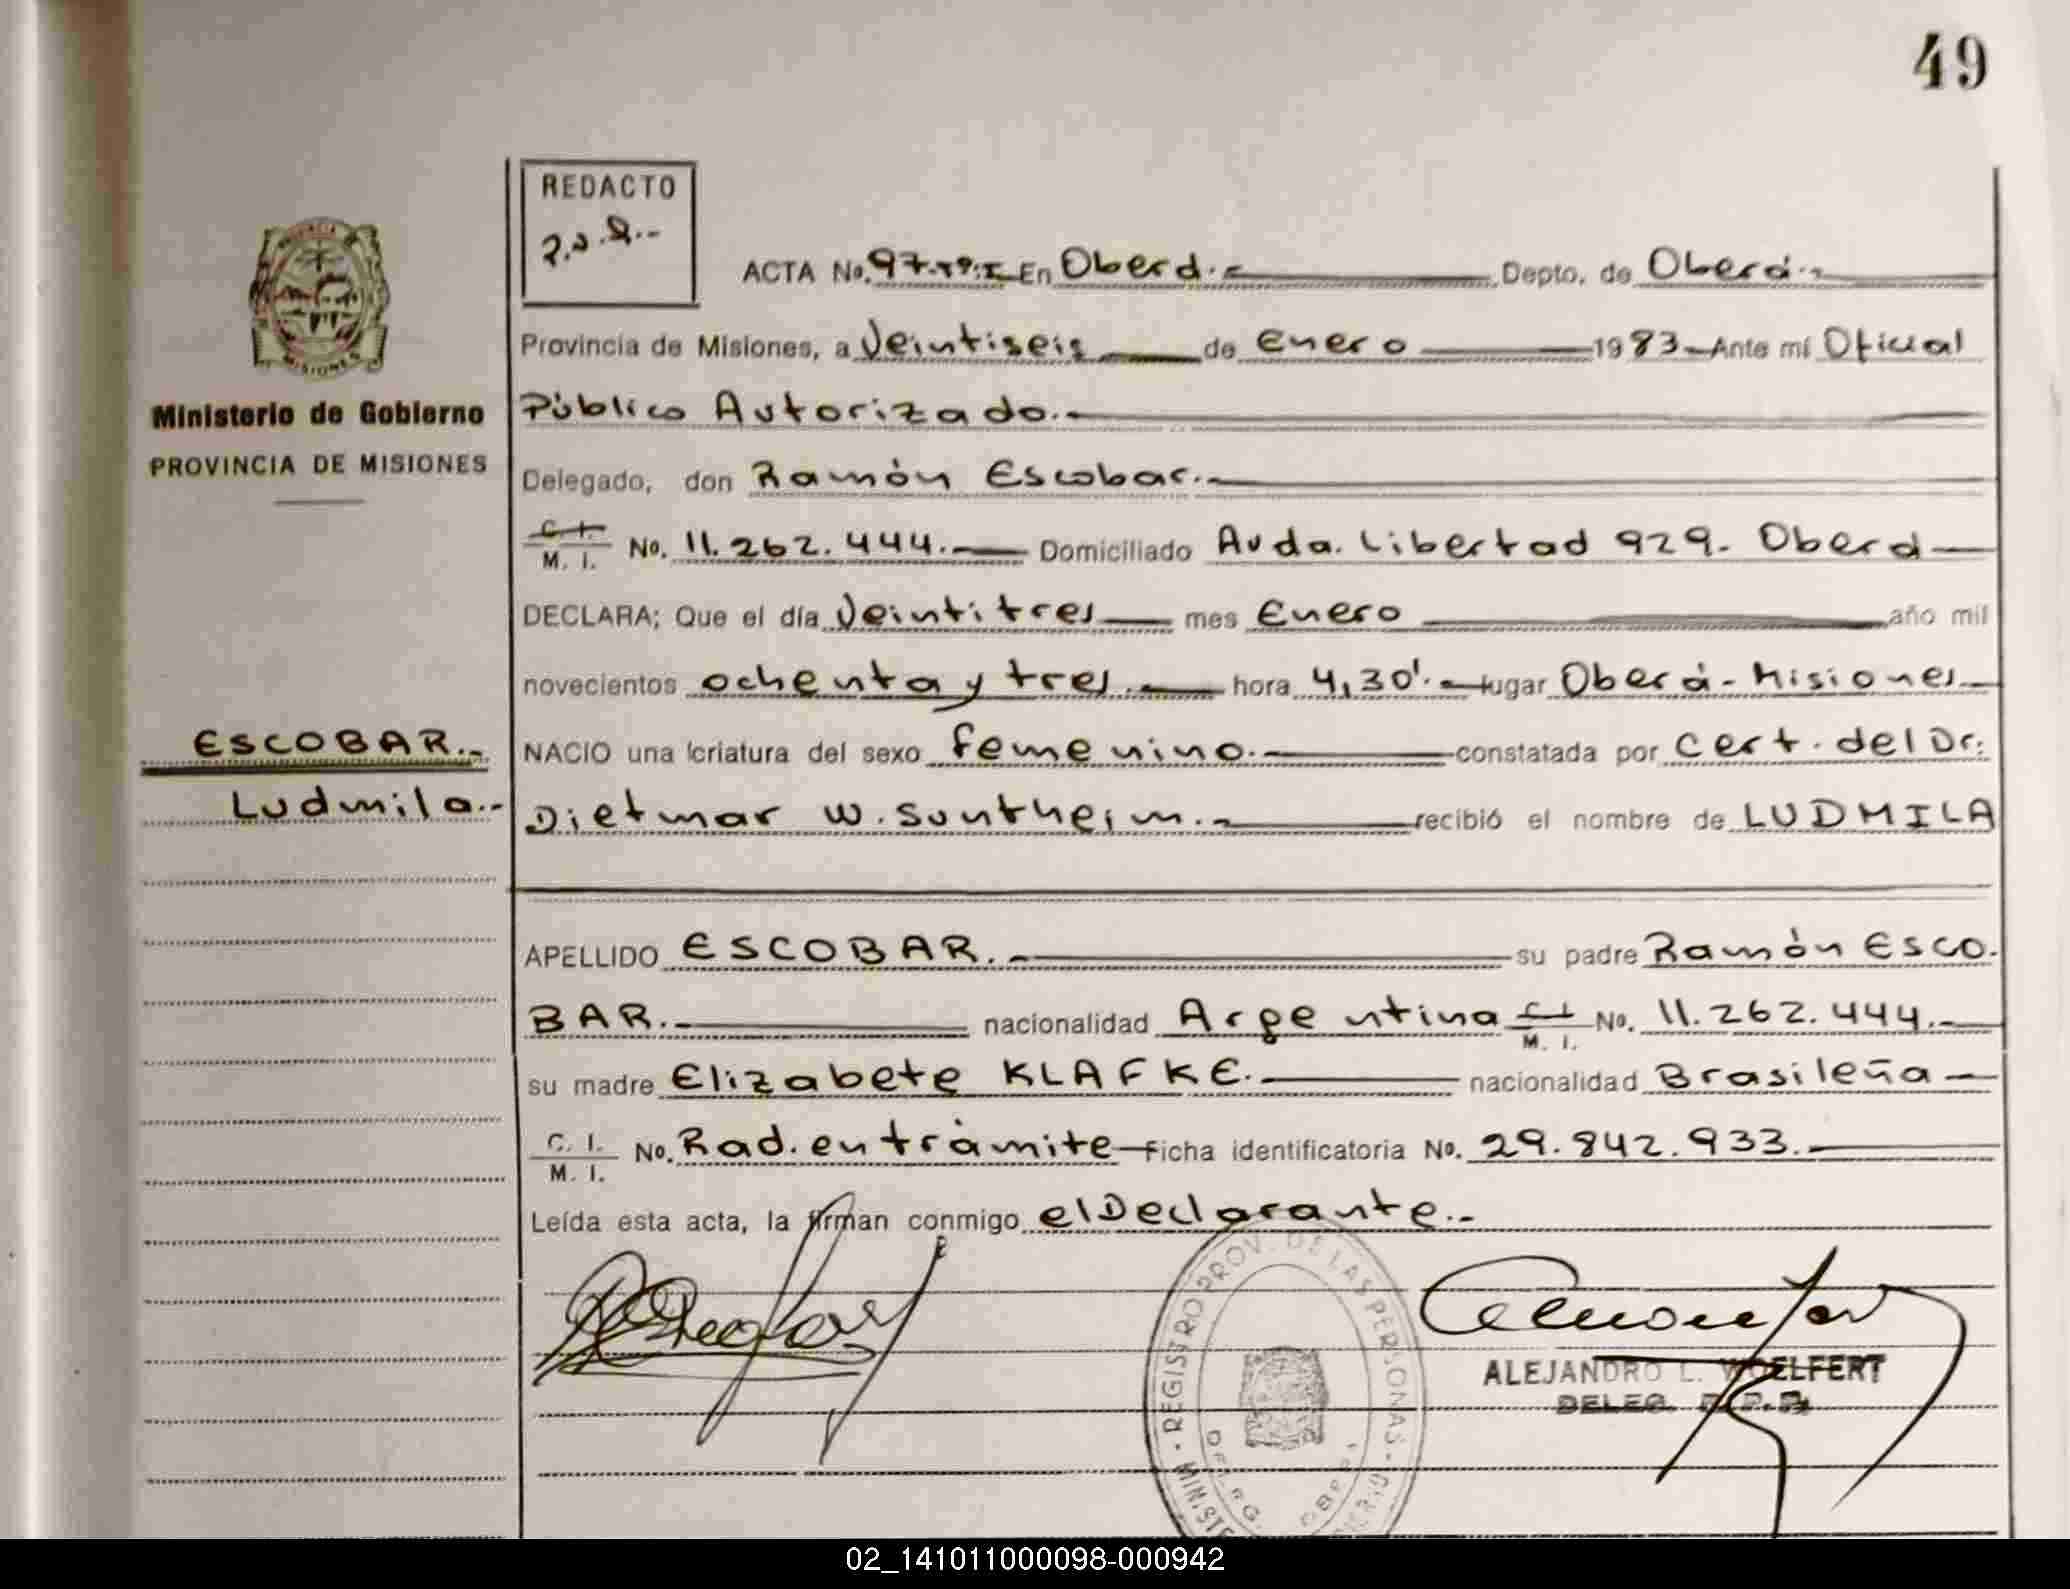 49
REDACTO
ACTA No. 97.Tº:I En Oberá.- Depto. de Oberá.-
Provincia de Misiones, a Veintiseis de Enero 1983 Ante mí Oficial
Público Autorizado.-
Delegado, don Ramón Escobar.-
C. I. M. I. No. 11.262.444.- Domiciliado Avda. Libertad 929. Oberá
DECLARA; Que el día Veintitres mes Enero año mil
novecientos ochenta y tres.- hora 4,30'.- lugar Oberá - Misiones
NACIO una criatura del sexo femenino.- constatada por Cert. del Dr.
Dietmar W. Suntheim.- recibió el nombre de LUDMILA
APELLIDO ESCOBAR.- su padre Ramón ESCO.
BAR.- nacionalidad Argentina C. I. M. I. No. 11.262.444.-
su madre Elizabete KLAFKE.- nacionalidad Brasileña
C. I. M. I. No. Rad. en trámite Ficha identificatoria No. 29.842.933.-
Leída esta acta, la firman conmigo el Declarante.-
PROVINCIA
MISIONES
Ministerio de Gobierno
PROVINCIA DE MISIONES
ESCOBAR.-
Ludmila.-
REGISTRO PROV. DE LAS PERSONAS
DELEG. OBERA
ALEJANDRO L. WOELFERT
DELEG. R. P. P.
02_141011000098-000942